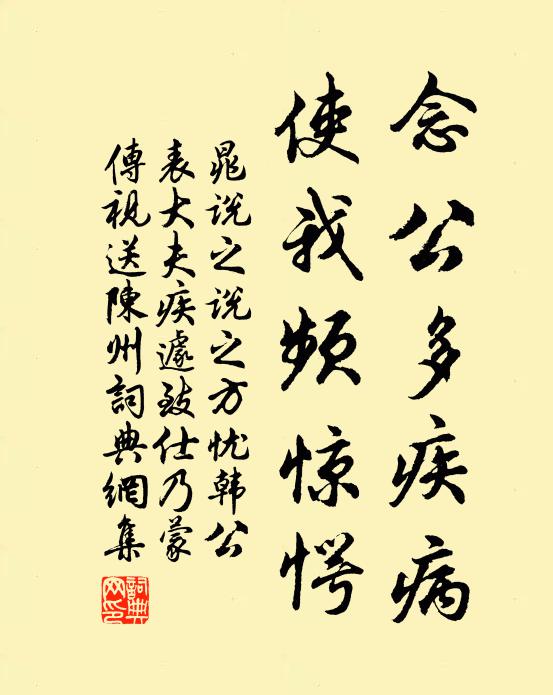 念公多疾病
使我频惊愕
晁说之说之方忧韩公
表大夫疾遽致仕乃蒙
傅視送陳州詞典網集
詞典
网印